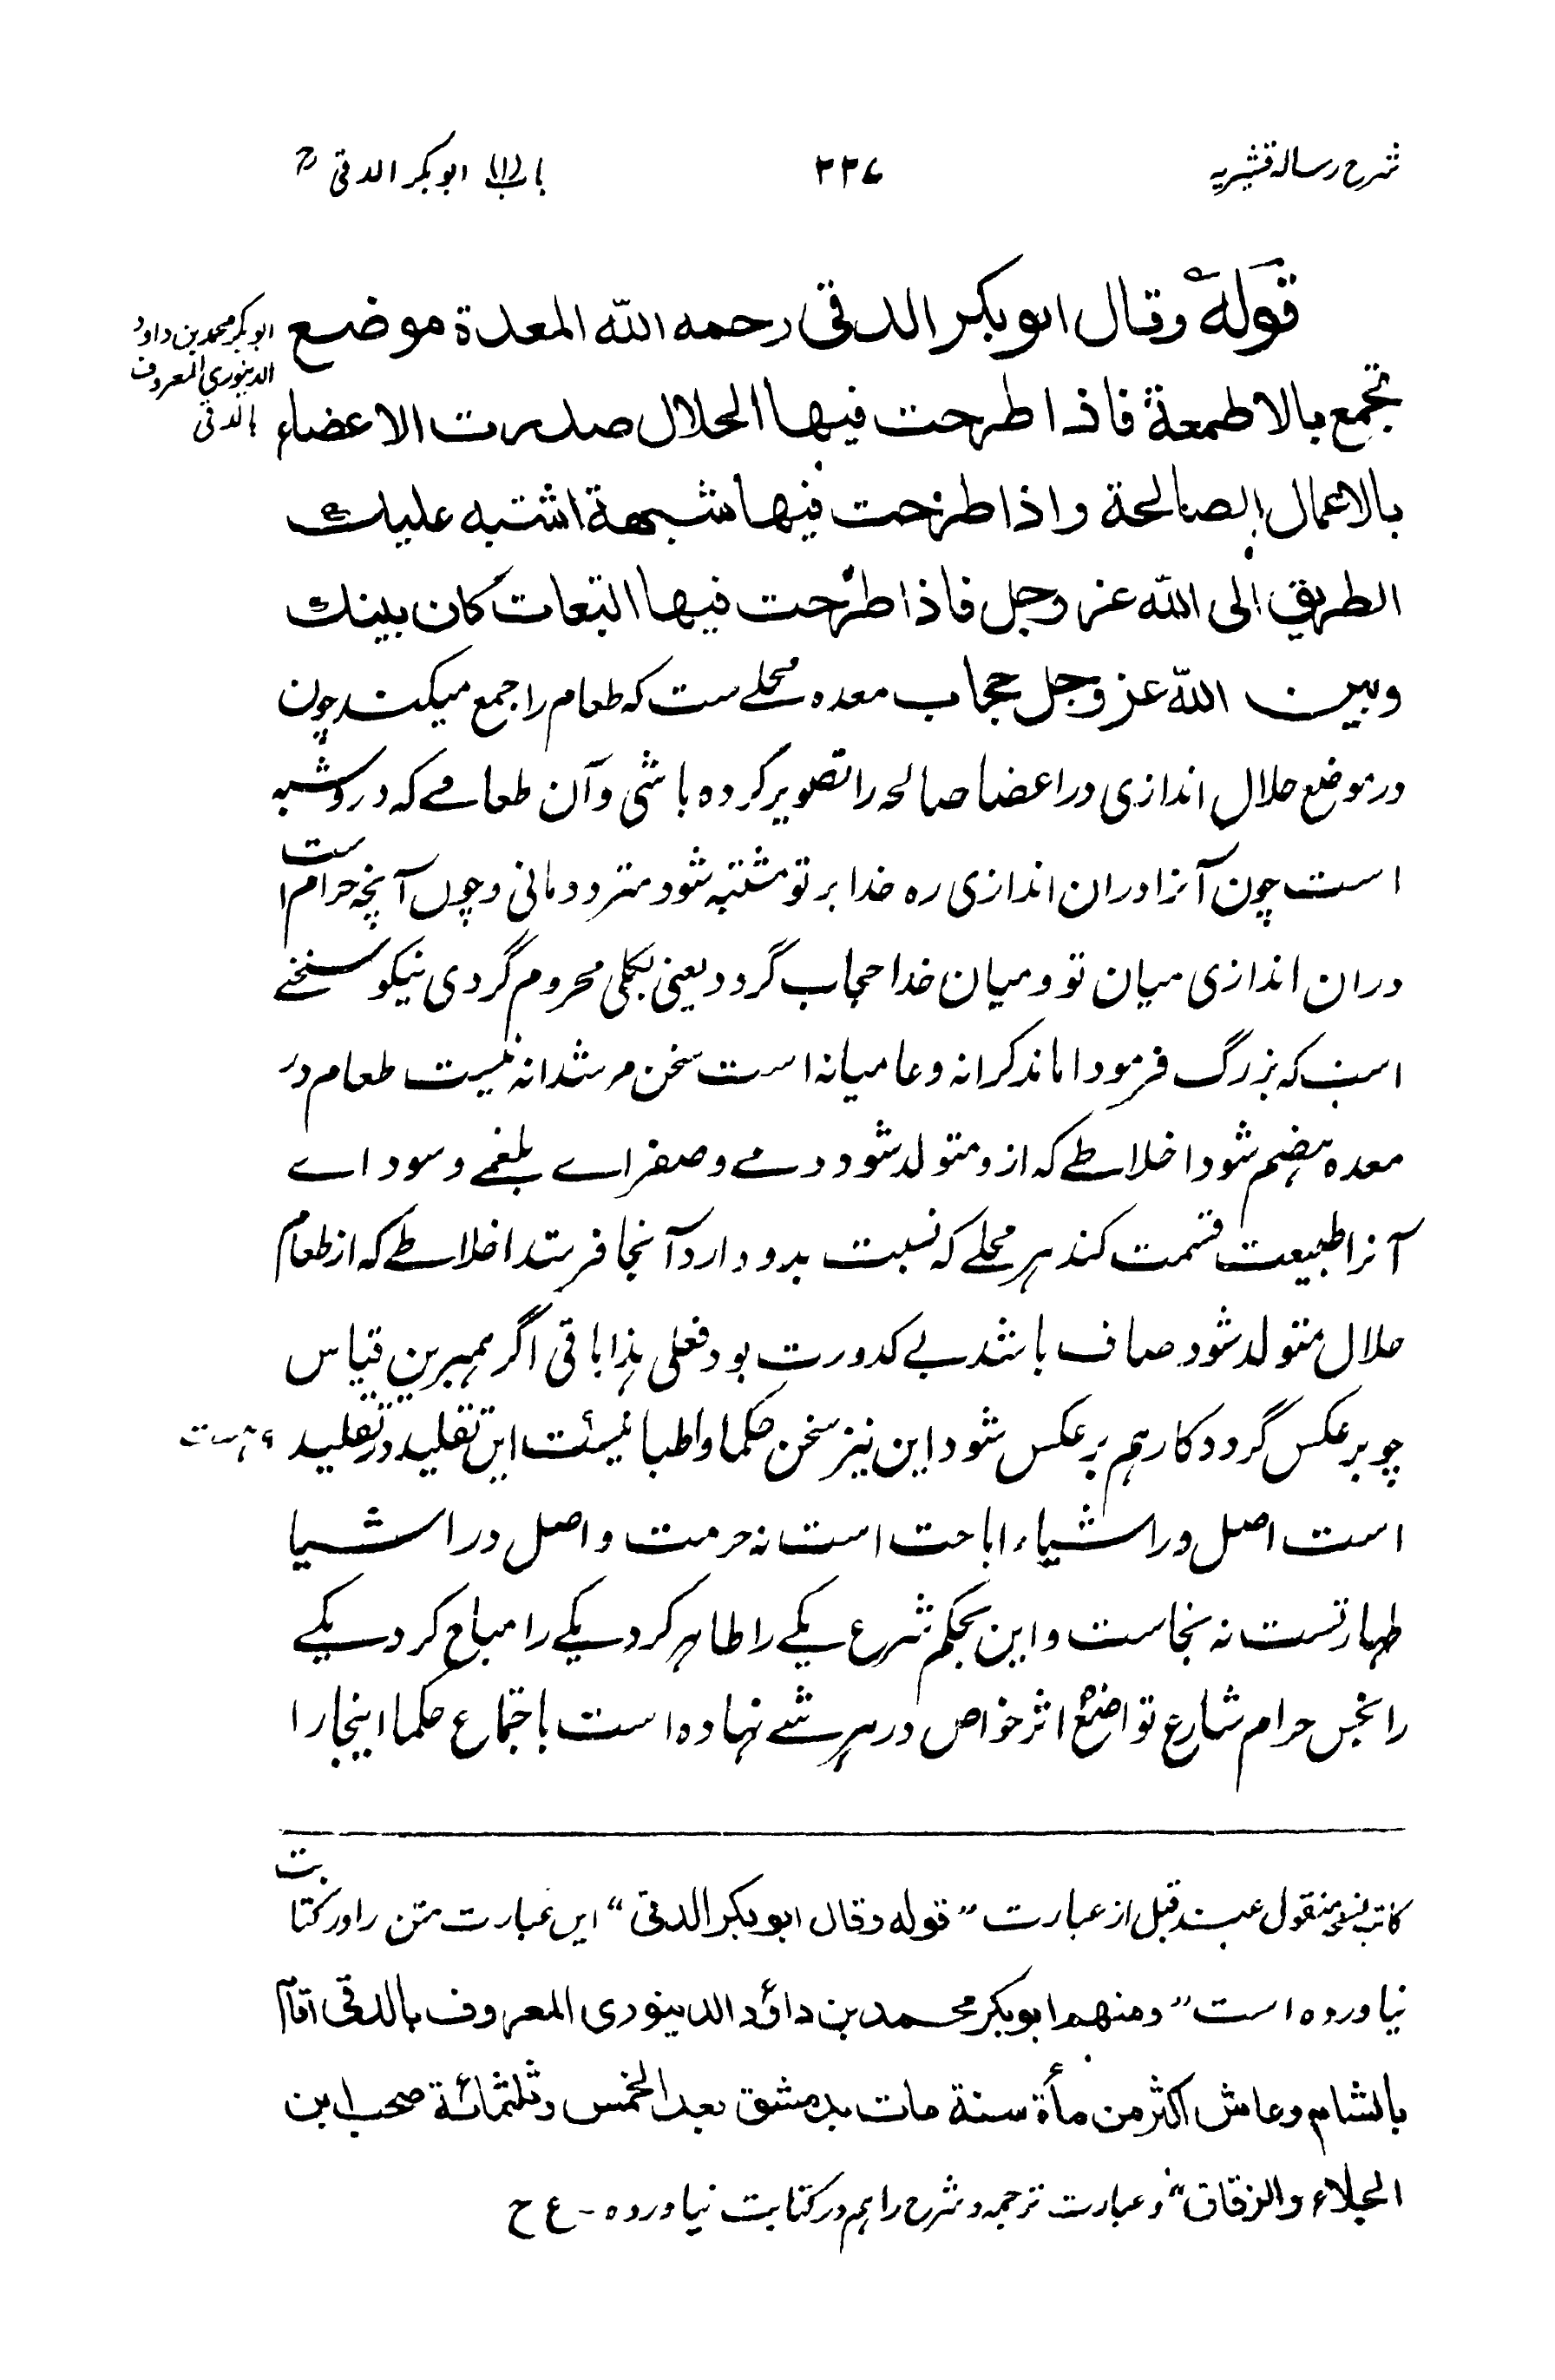 شرح رسالہ قشیریہ
۲۳۷
باب (۱) ابوبکر الدقی ؒ
قولہٗ وقال ابوبکر الدقی رحمه اللّٰه المعدة موضع
ابوبکر محمد بن داود
الدینوری المعروف
بالدقی
تجمع بالاطمعة فاذا طرحت فیها الحلال صدرت الاعضاء
بالاعمال الصالحة واذا طرحت فیها شبهة اشتبه علیك
الطریق الی اللّٰه عز وجل فاذا طرحت فیها التبعات کان بینك
وبین اللّٰه عز وجل حجاب معده محلے ست که طعام را جمع میکند چون
در موضع حلال اندازی در اعضا صالحه را تصویر کرده باشی وآن طعامے که در وشبه
است چون آنرا دران اندازی ره خدا بر تو مشتبه شود متردد مانی وچوں آنچه حرام است
دران اندازی میان تو ومیان خدا حجاب گردد یعنی بکلی محروم گردی نیکو سخنے
است که بزرگ فرمود اما مذکرانه وعامیانه است سخن مرشدانه نیست طعام در
معده هضم شود اخلاطے که ازو متولد شود دمے وصفراے بلغمے وسوداے
آنرا طبیعت قسمت کند هر محلے که نسبت بدو دارد آنجا فرستد اخلاطے که از طعام
حلال متولد شود صاف باشد بے کدورت بود فعلی هذا باقی اگر همبرین قیاس
چو برعکس گردد کار هم برعکس شود این نیز سخن حکما واطبا نیست این تقلید در تقلید
است اصل در اشیاء اباحت است نه حرمت واصل در اشیا
طهارتست نه نجاست واین بحکم شرع یکے را طاهر کرد یکے را مباح کرد یکے
را نجس حرام شارع تواضع اثر خواص در هر شے نهاده است باجماع حکما اینجا را
کاتب نسخه منقول عنه قبل از عبارت ”قوله وقال ابوبکر الدقی“ ایں عبارت متن را در کتابت
نیاورده است ”ومنهم ابوبکر محمد بن داؤد الدینوری المعروف بالدقی اقام
بالشام وعاش اکثر من مأة سنة مات بدمشق بعد الخمس وثلثمائة صحب ابن
الجلاء والزقاق“ و عبارت ترجمه وشرح را هم در کتابت نیاورده ۔ ع ح